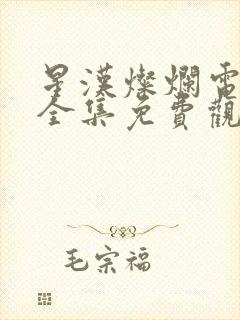 星漢燦爛電
全集免費觀
毛宗福